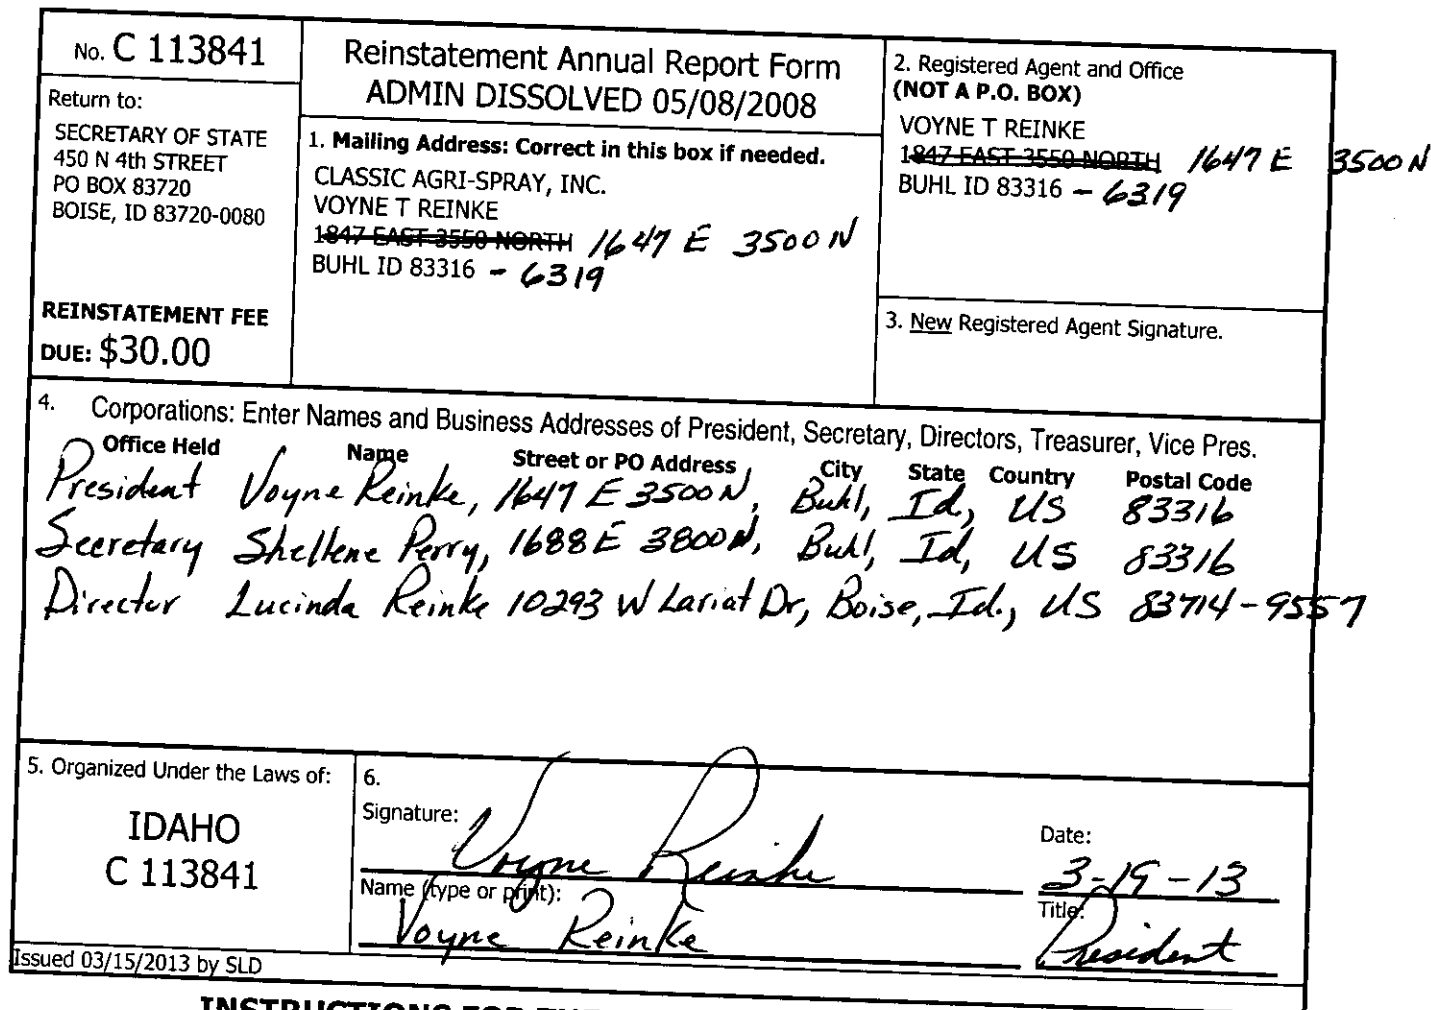 No. C 113841
Return to:
SECRETARY OF STATE
450 N 4th STREET
PO BOX 83720
BOISE, ID 83720-0080
REINSTATEMENT FEE
DUE: $30.00
Reinstatement Annual Report Form
ADMIN DISSOLVED 05/08/2008
1. Mailing Address: Correct in this box if needed.
CLASSIC AGRI-SPRAY, INC.
VOYNE T REINKE
1847 EAST 3550 NORTH 1647 E 3500 N
BUHL ID 83316 - 6319
2. Registered Agent and Office
(NOT A P.O. BOX)
VOYNE T REINKE
1847 EAST 3550 NORTH 1647 E 3500 N
BUHL ID 83316 - 6319
3. New Registered Agent Signature.
4. Corporations: Enter Names and Business Addresses of President, Secretary, Directors, Treasurer, Vice Pres.
Office Held Name Street or PO Address City State Country Postal Code
President Voyne Reinke, 1647 E 3500 N, Buhl, Id, US 83316
Secretary Shellene Perry, 1688 E 3800 N, Buhl, Id, US 83316
Director Lucinda Reinke 10293 W Lariat Dr, Boise, Id., US 83714-9557
5. Organized Under the Laws of:
IDAHO
C 113841
6.
Signature: Voyne Reinke
Date: 3-19-13
Name (type or print): Voyne Reinke
Title: President
Issued 03/15/2013 by SLD
INSTRUCTIONS FOR